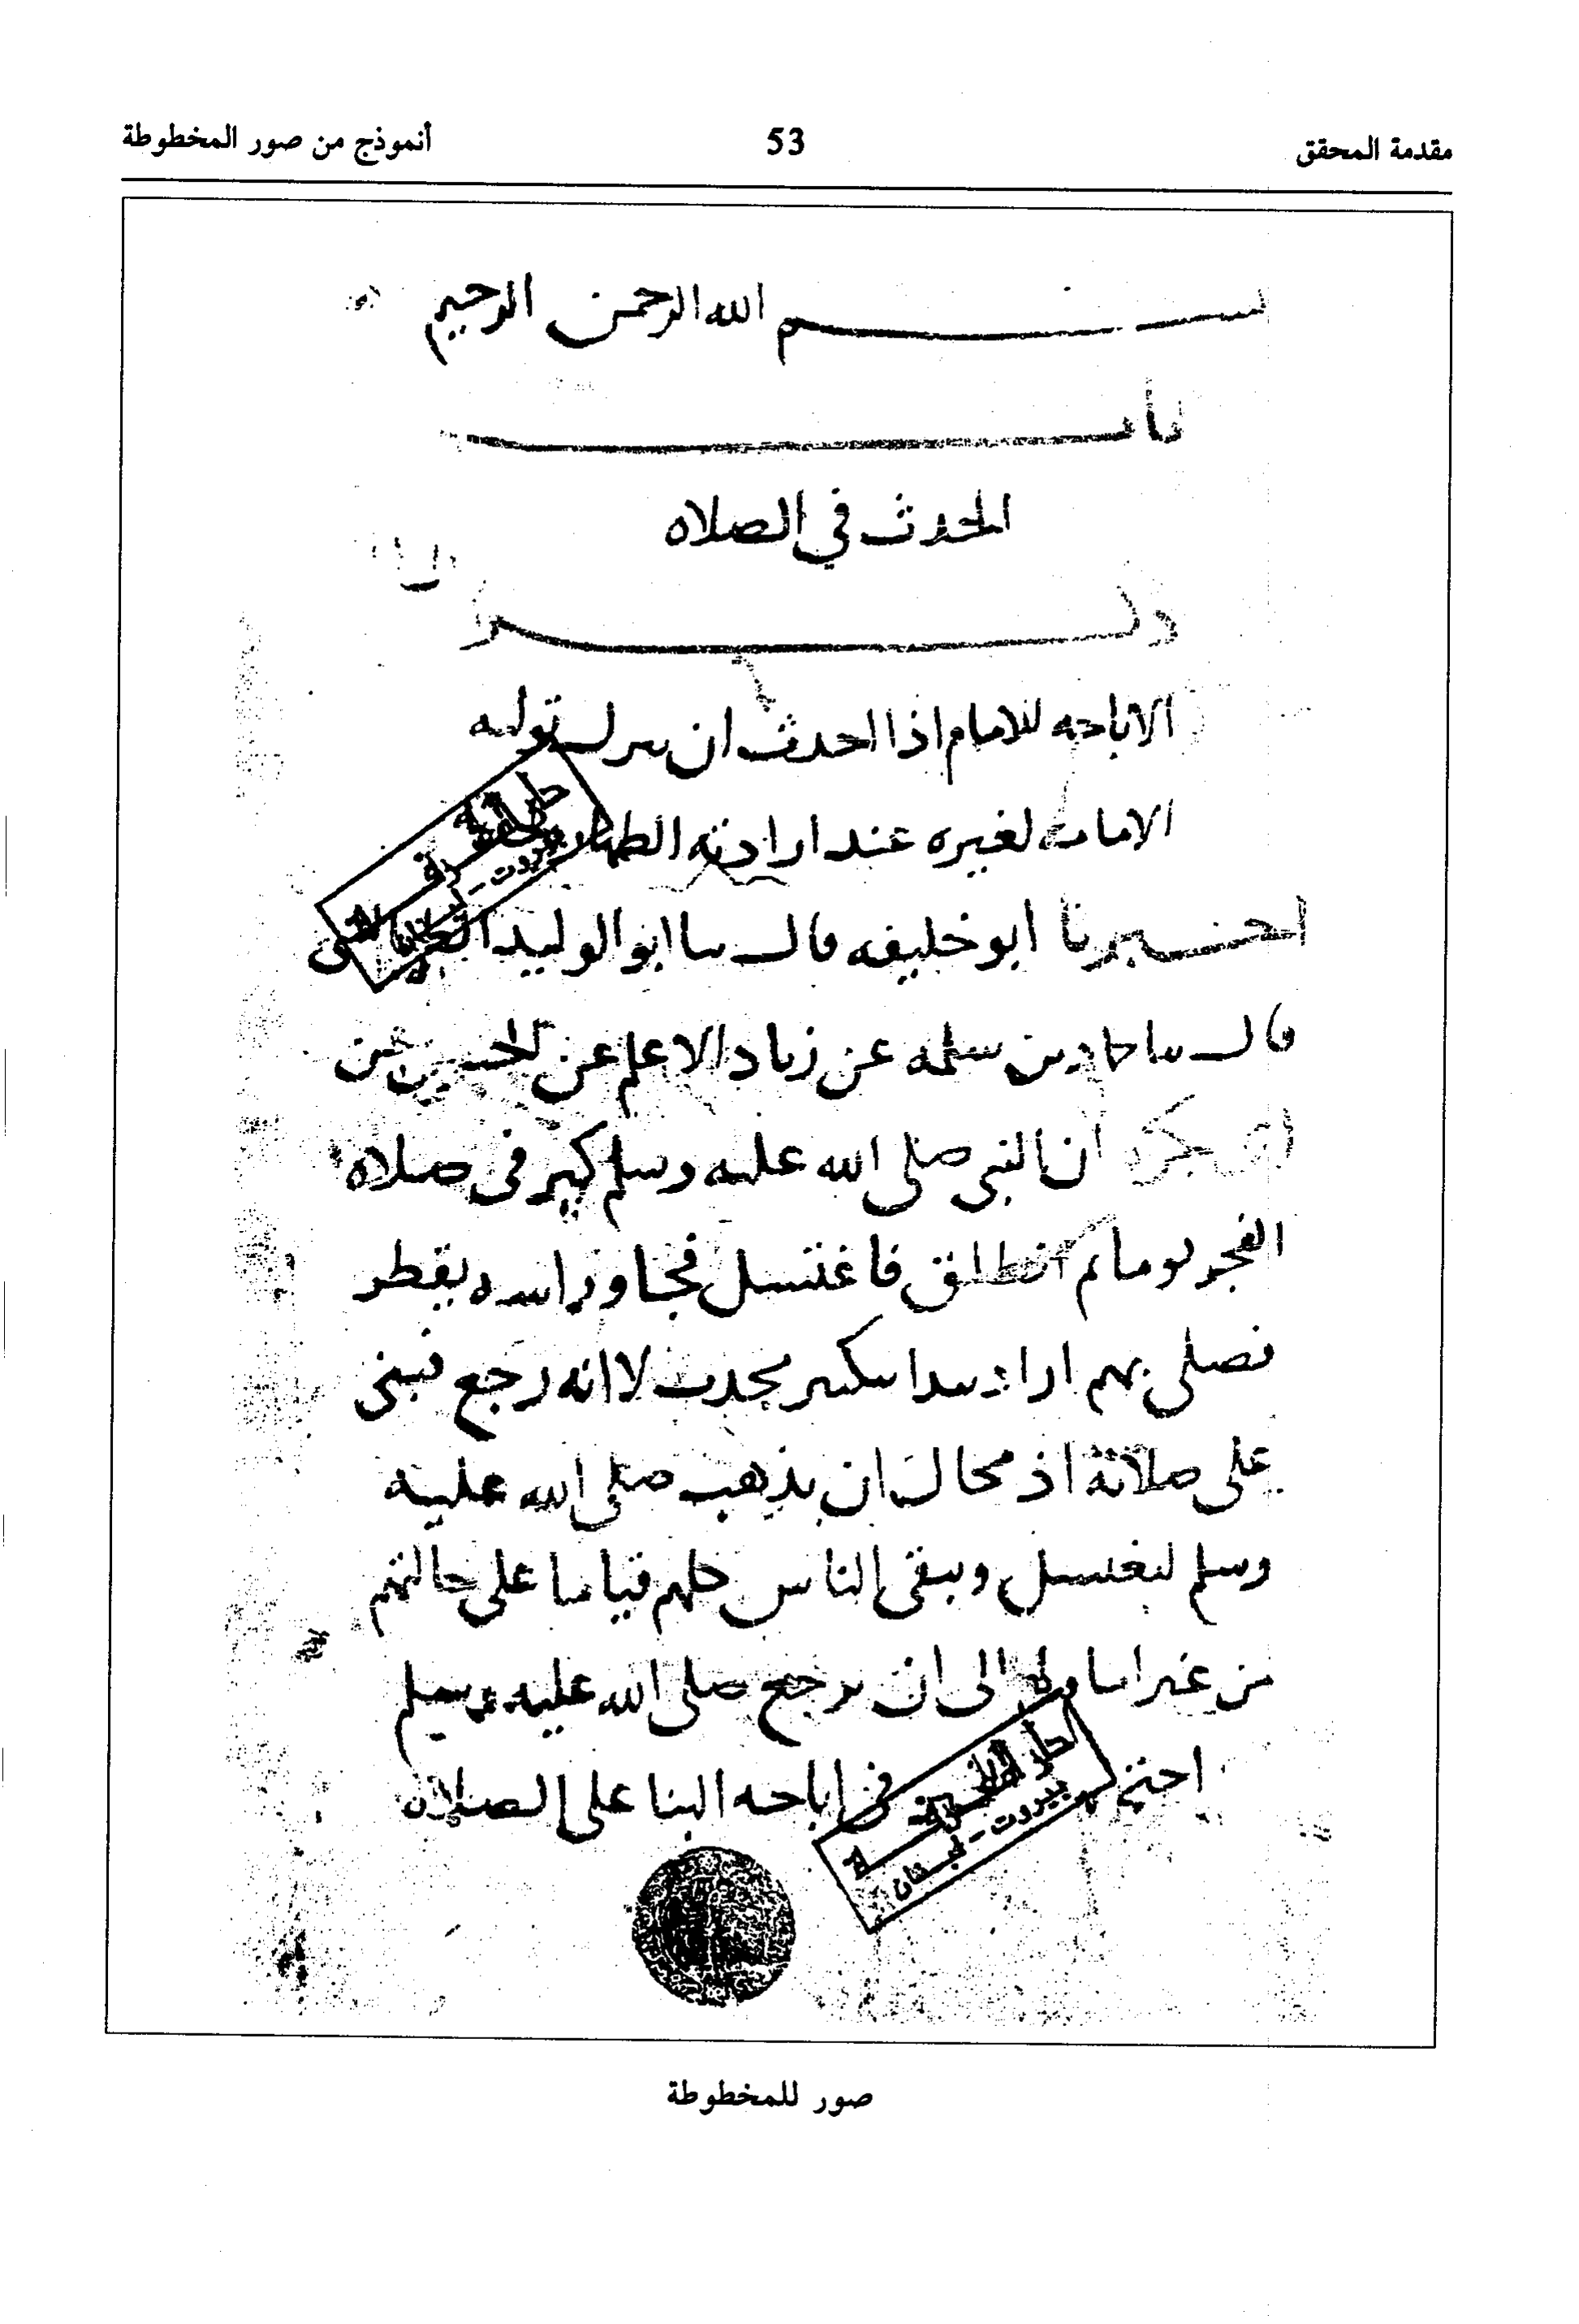 مقدمة المحقق 53 أنموذج من صور المخطوطة
بسم الله الرحمن الرحيم
باب
الحدث في الصلاه
ذكر
الاباحه للامام اذا احدث ان يترك توليه
الامامه لغيره عند ارادته
احبرنا ابو خليفه قال سا ابو الوليد
قال سا حماد بن سلمه عن زياد الاعلم عن الحسن عن
ابى بكره ان النبي صلى الله عليه وسلم كبر في صلاه
الفجر يوما ثم انطلق فاغتسل فجا وراسه يقطر
فصلى بهم اراد يبدا بتكبير محدث لا انه رجع فبنى
على صلاته اذ محال ان يذهب صلى الله عليه
وسلم ليغتسل ويبقى الناس كلهم قياما على حالتهم
من غير امام الى ان يرجع صلى الله عليه وسلم
احتج في اباحه البنا على الصلاه
بيروت - لبنان
صور للمخطوطة